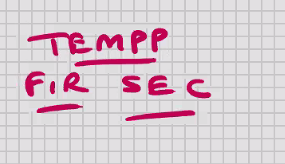 TEMPP
FIR SEC